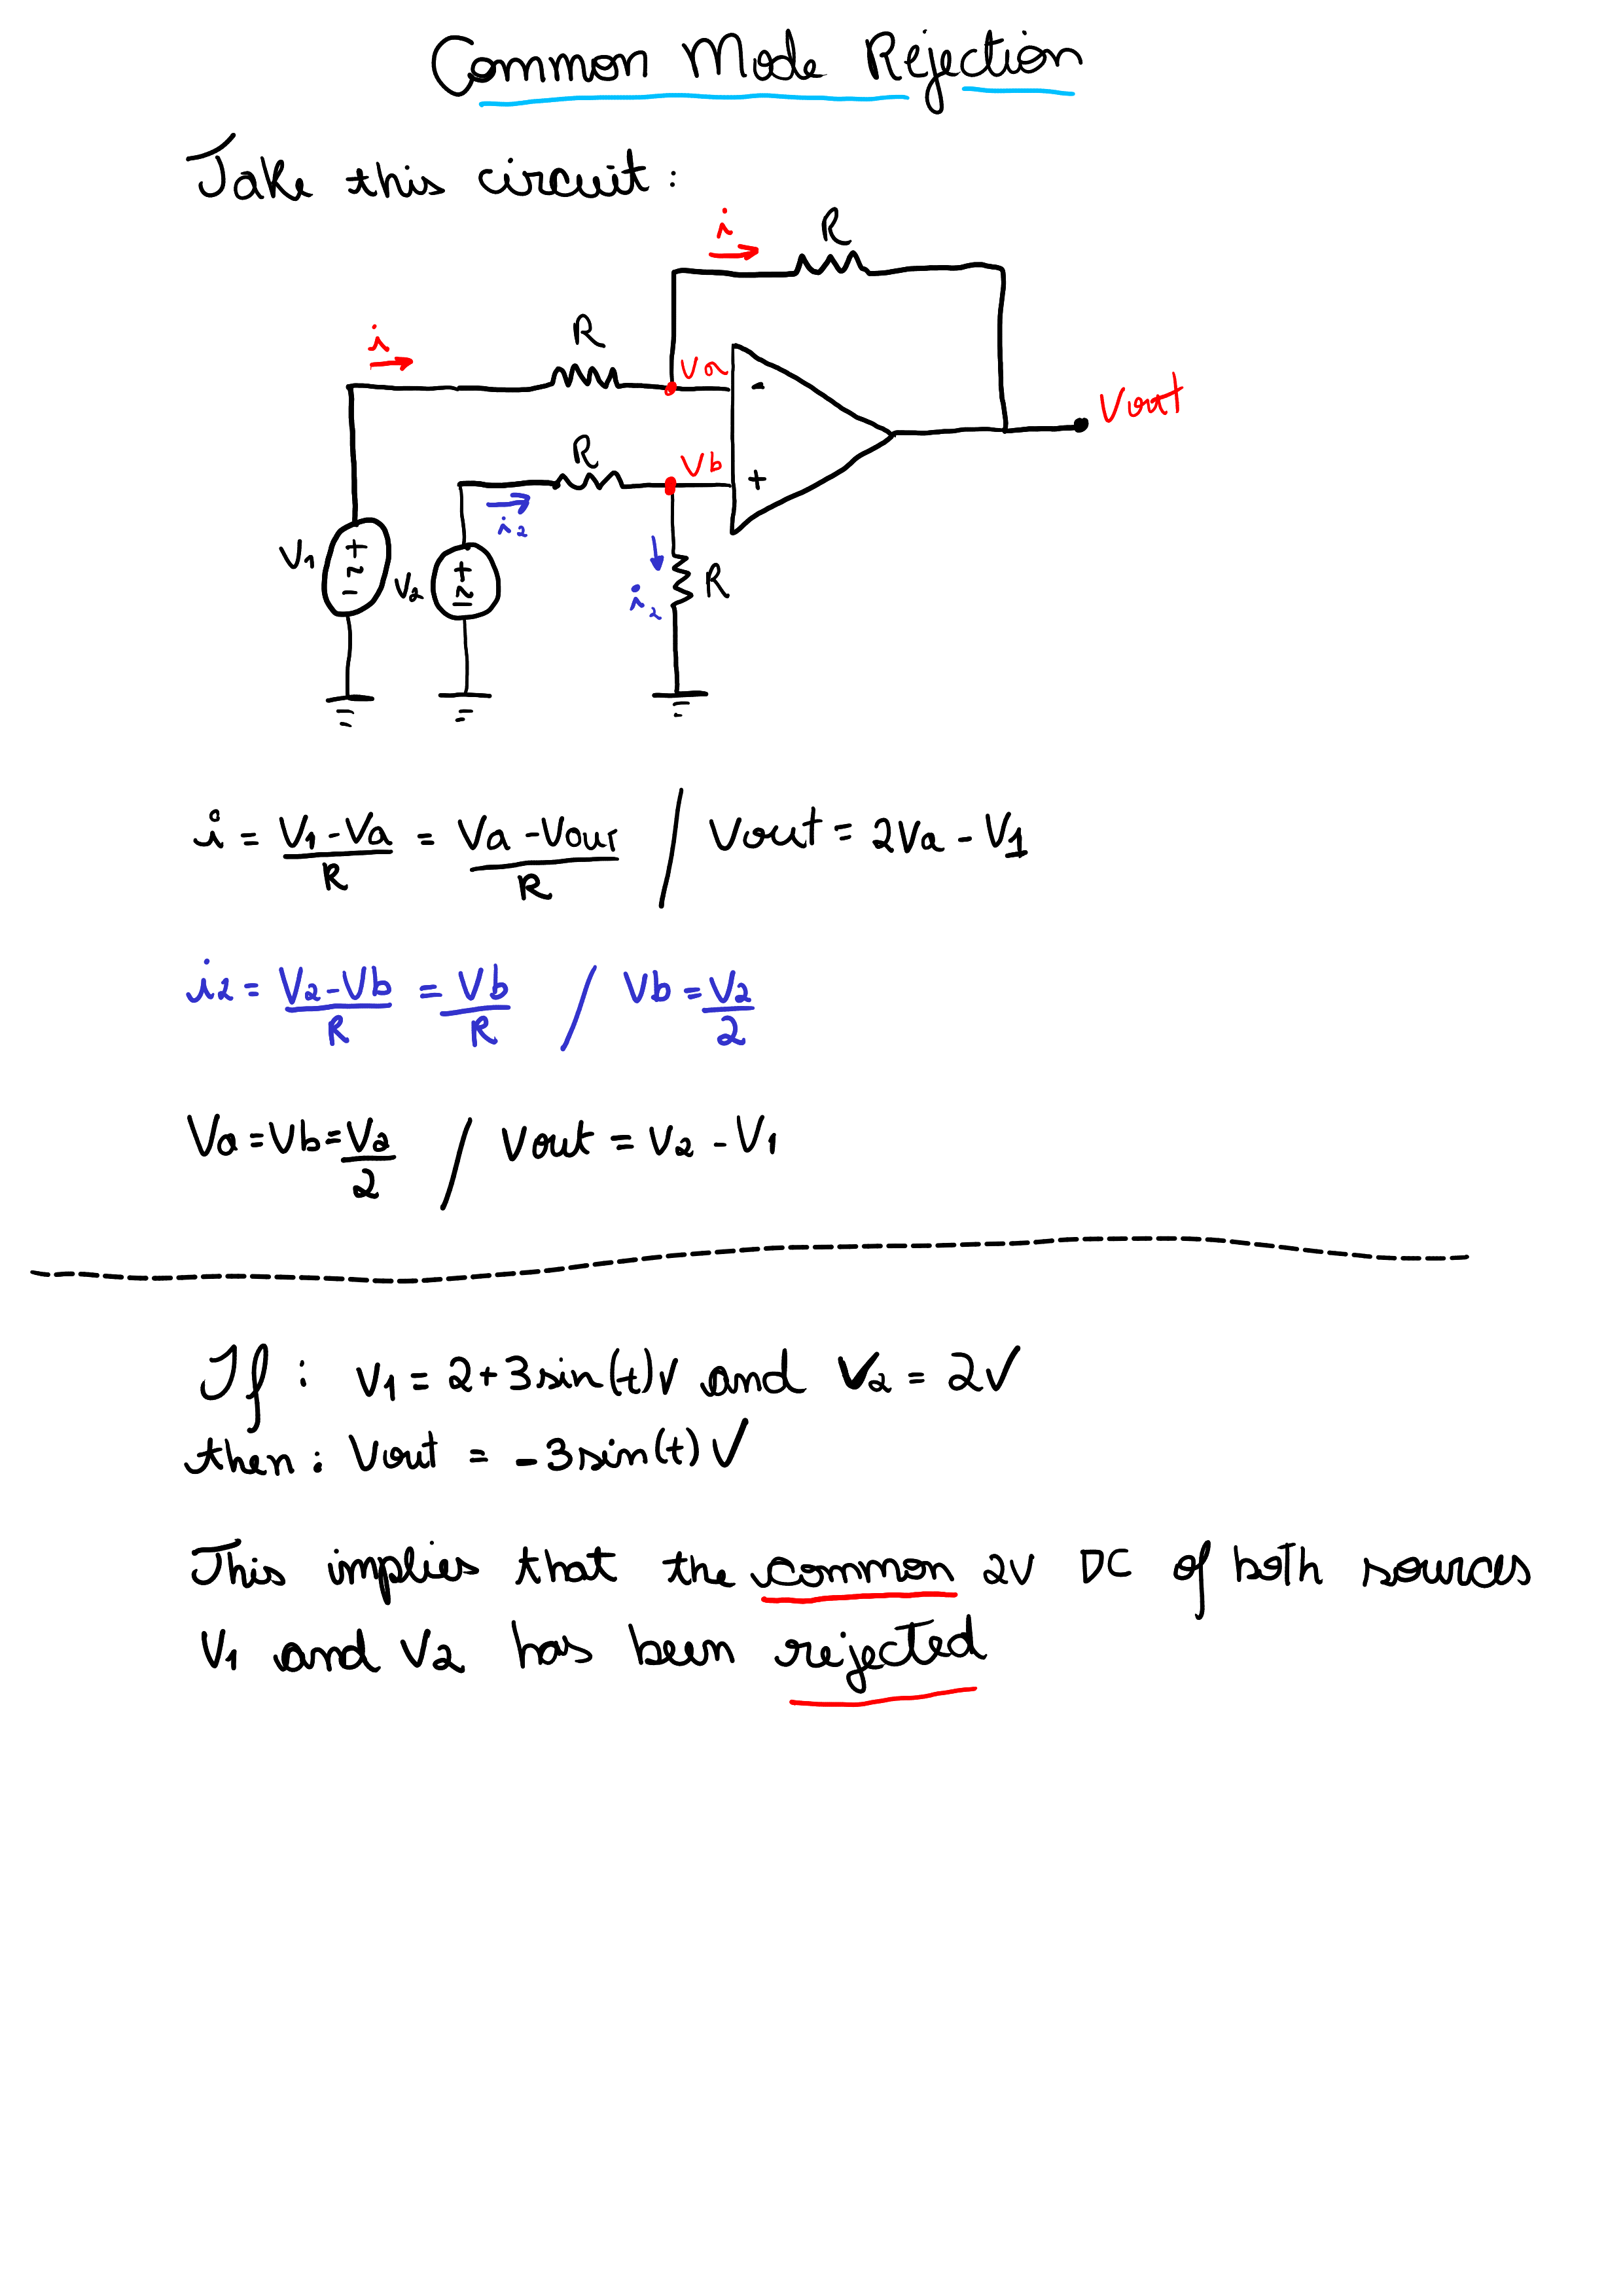 Common Mode Rejection
Take this circuit :
i
R
i
R
Va
-
Vout
R
Vb
+
i2
V1
+
~
-
V2
+
~
-
i2
R
i = V1-Va/R = Va-Vour/R / Vout = 2Va - V1
i2 = V2-Vb/R = Vb/R / Vb = V2/2
Va = Vb = V2/2 / Vout = V2 - V1
If : V1 = 2+3sin(t)V and V2 = 2V
then : Vout = -3sin(t) V
This implies that the common 2V DC of both sources
V1 and V2 has been rejected